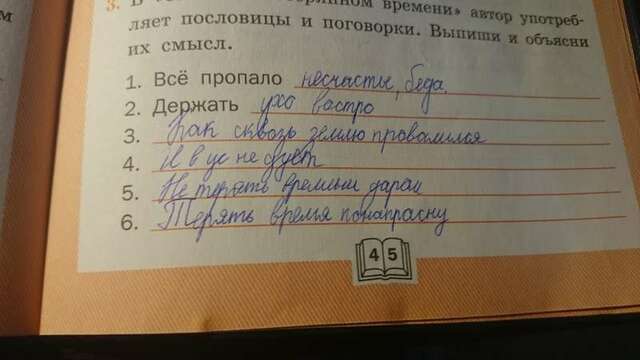 3. В «... потерянном времени» автор употреб-
ляет пословицы и поговорки. Выпиши и объясни
их смысл.
1. Всё пропало несчастье, беда.
2. Держать ухо востро
3. Как сквозь землю провалился
4. И в ус не дует
5. Не терять времени даром
6. Терять время понапрасну
45